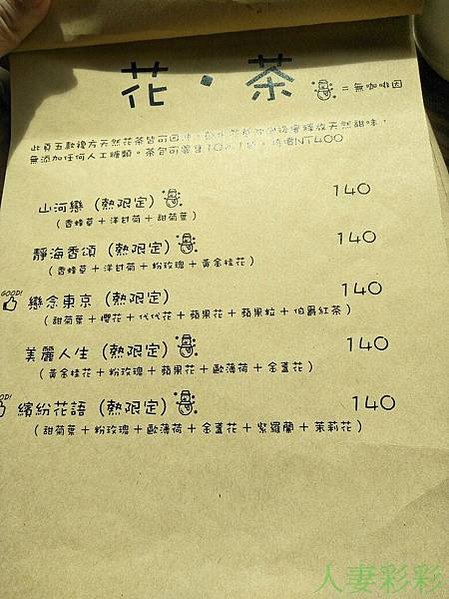 花·茶
=無咖啡因
此頁五款複方天然花茶皆可回沖，釋放天然甜味，
無添加任何人工糖類。茶包可零售10入1袋，NT400
山河戀（熱限定） 140
（香蜂草＋洋甘菊＋甜菊葉）
靜海香頌（熱限定） 140
（香蜂草＋洋甘菊＋粉玫瑰＋黃金桂花）
GOOD! 戀念東京（熱限定） 140
（甜菊葉＋櫻花＋代代花＋蘋果花＋蘋果粒＋伯爵紅茶）
美麗人生（熱限定） 140
（黃金桂花＋粉玫瑰＋蘋果花＋歐薄荷＋金盞花）
OOD! 繽紛花語（熱限定） 140
（甜菊葉＋粉玫瑰＋歐薄荷＋金盞花＋紫羅蘭＋茉莉花）
人妻彩彩